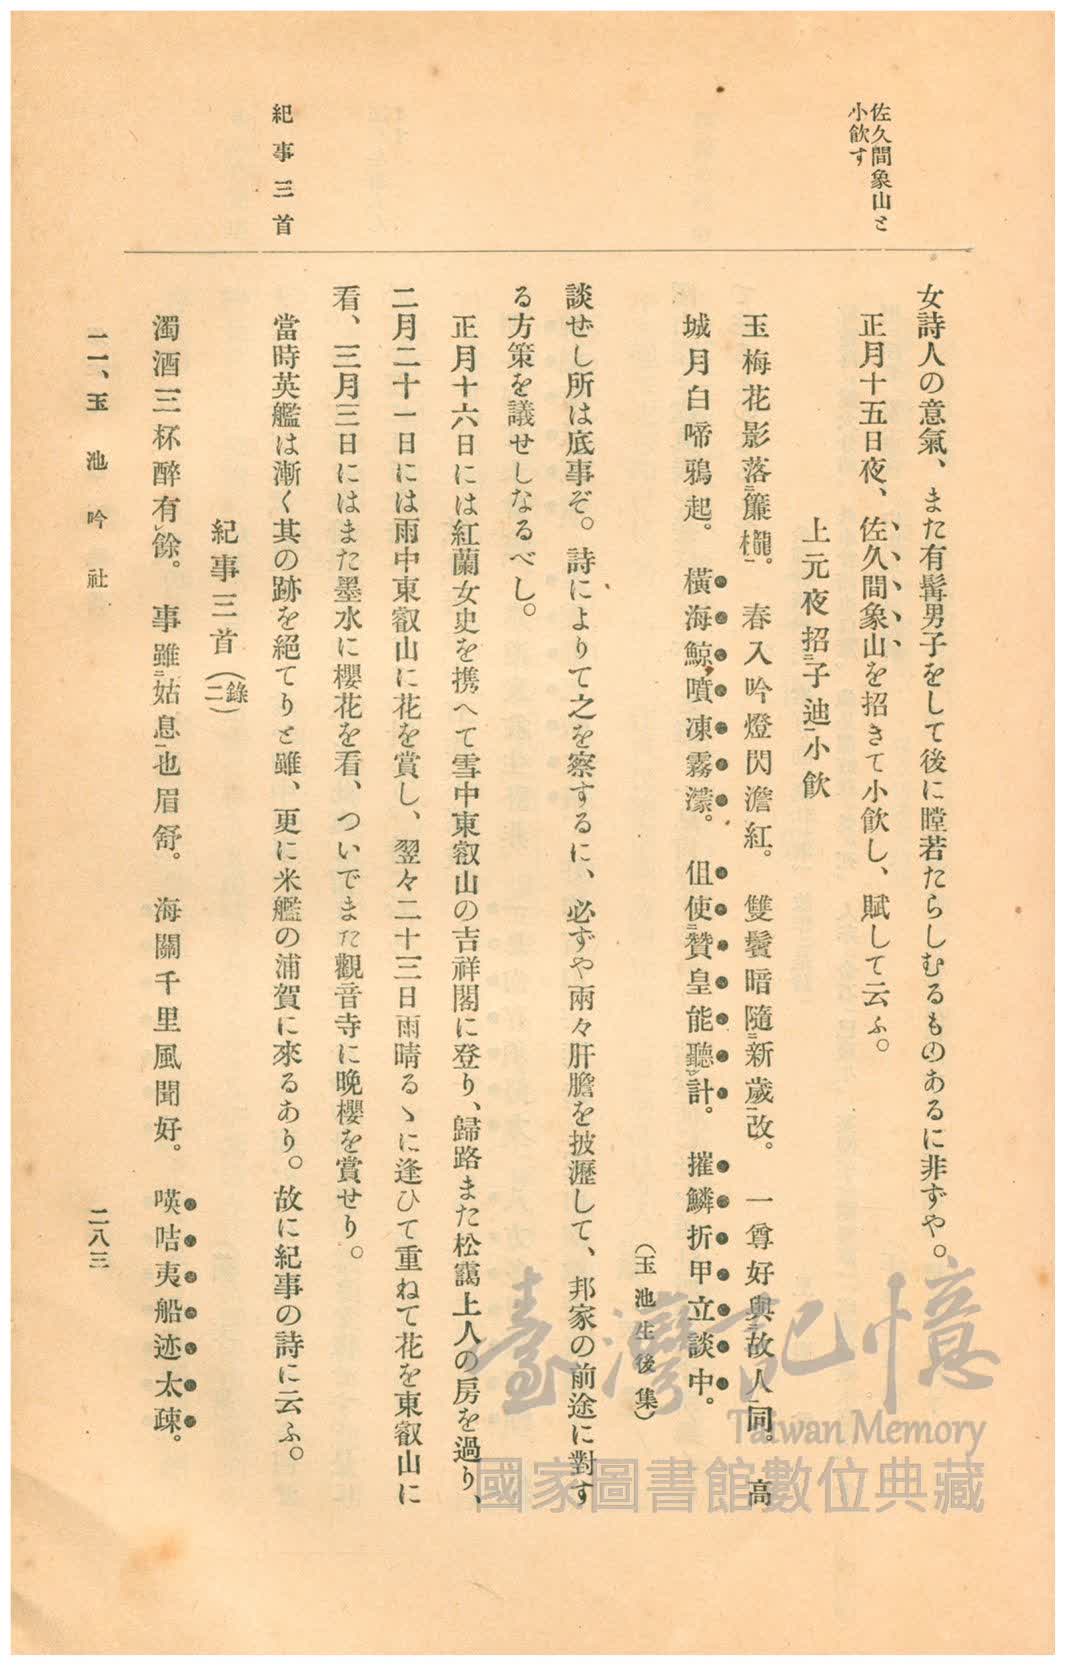 佐久間象山と
小飮す
紀事三首
女詩人の意氣、また有髯男子をして後に瞠若たらしむるものあるに非ずや。
正月十五日夜、佐久間象山を招きて小飮し、賦して云ふ。
上元夜招二子迪一小飮
玉梅花影落二簾櫳一。 春入吟燈閃澹紅。 雙鬢暗隨二新歲一改。 一尊好與二故人一同。 高
城月白啼鴉起。 橫海鯨噴凍霧濛。 伹使二贊皇能聽一レ計。 摧鱗折甲立談中。
(玉池生後集)
談ぜし所は底事ぞ。詩によりて之を察するに、必ずや兩々肝膽を披瀝して、邦家の前途に對す
る方策を議せしなるべし。
正月十六日には紅蘭女史を携へて雪中東叡山の吉祥閣に登り、歸路また松靄上人の房を過り、
二月二十一日には雨中東叡山に花を賞し、翌々二十三日雨晴るゝに逢ひて重ねて花を東叡山に
看、三月三日にはまた墨水に櫻花を看、ついでまた觀音寺に晩櫻を賞せり。
當時英艦は漸く其の跡を絕てりと雖、更に米艦の浦賀に來るあり。故に紀事の詩に云ふ。
紀事三首(錄二)
濁酒三杯醉有レ餘。 事雖二姑息一也眉舒。 海關千里風聞好。 𠸄咭夷船迹太疎。
二一、玉池吟社
二八三
臺灣記憶
Taiwan Memory
國家圖書館數位典藏